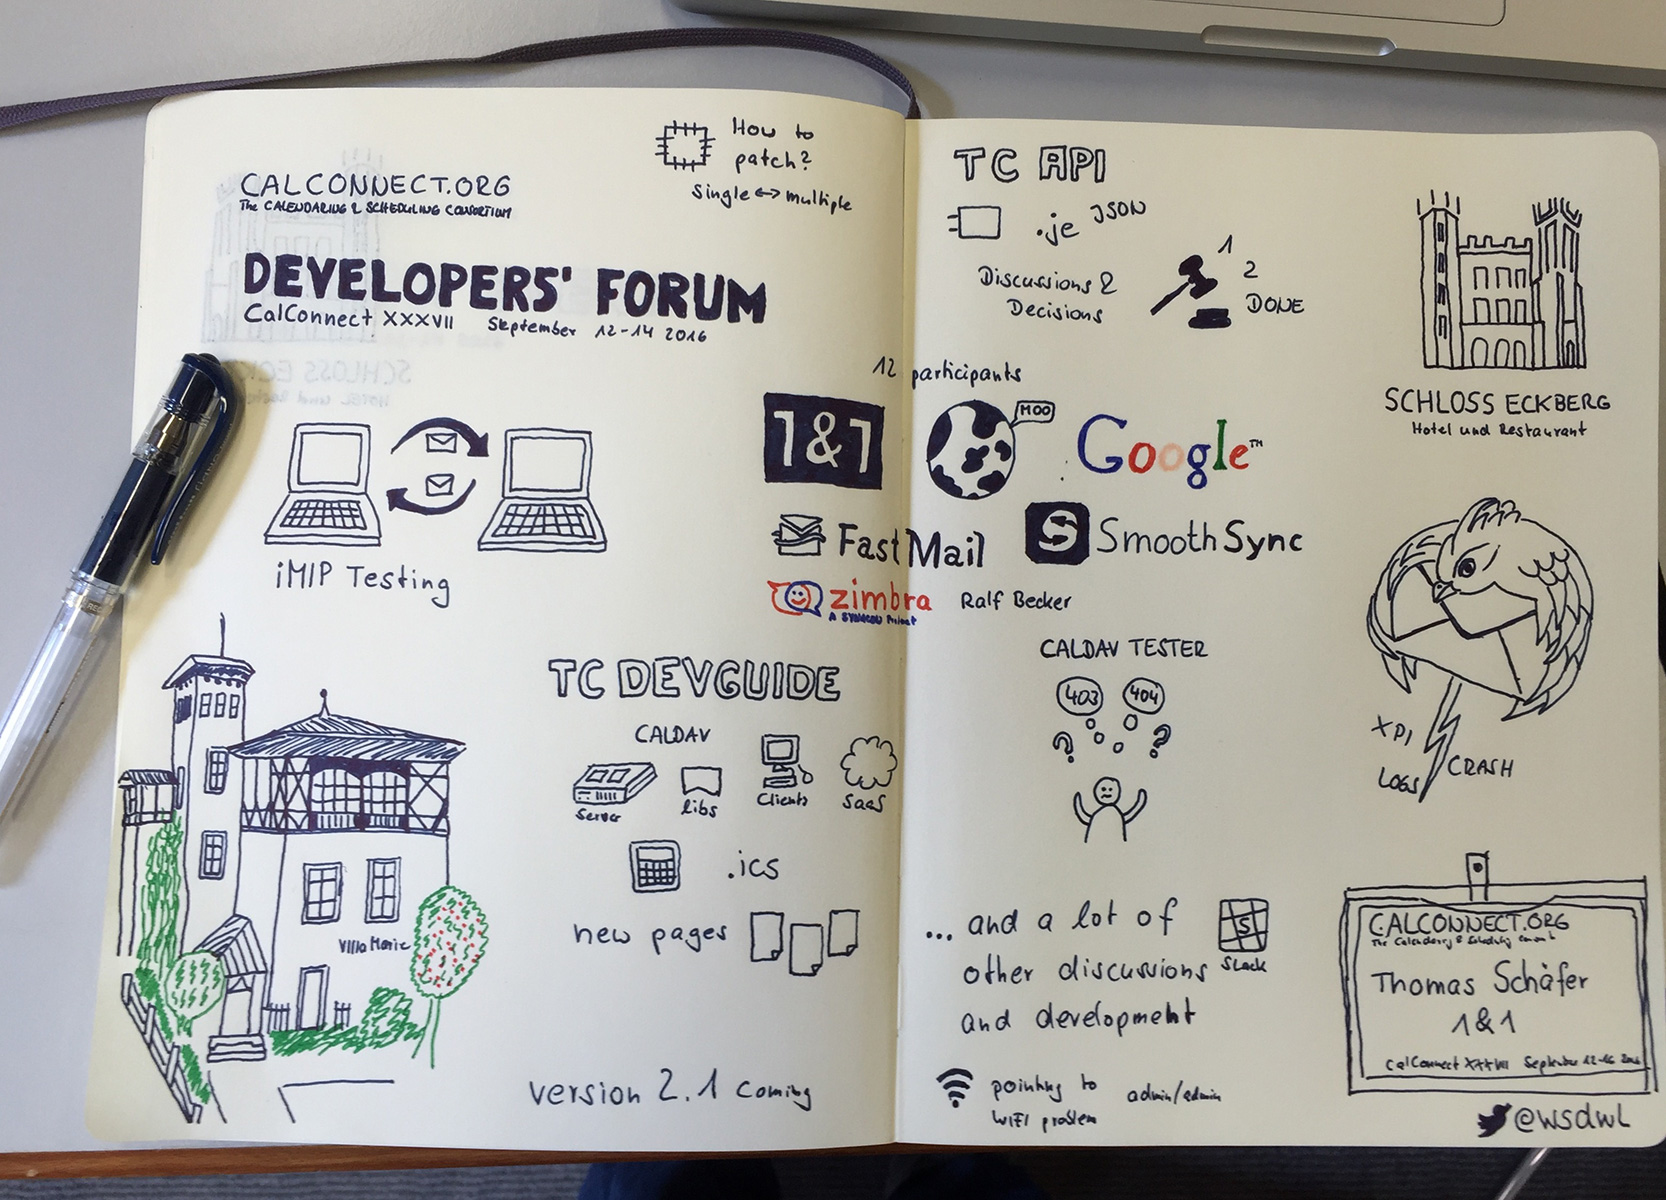 How to
patch?
Single <-> multiple
CALCONNECT.ORG
The CALENDARING & SCHEDULING CONSORTIUM
DEVELOPERS' FORUM
CalConnect XXXVII September 12-14 2016
iMIP Testing
Villa Marie
TC DEVGUIDE
CALDAV
Server
libs
Clients
SaaS
.ics
new pages
version 2.1 coming
TC API
.je JSON
Discussions &
Decisions
1
2
DONE
12 participants
1&1
MOO
Google™
FastMail
S
SmoothSync
zimbra
A SYNACOR Product
Ralf Becker
CALDAV TESTER
403
404
?
?
... and a lot of
other discussions
and development
S
Slack
pointing to
WiFi problem
admin/admin
SCHLOSS ECKBERG
Hotel und Restaurant
XPI
LOGS
CRASH
CALCONNECT.ORG
The Calendaring & Scheduling
Thomas Schäfer
1&1
CalConnect XXXVII September 12-16 2016
@wsdwl